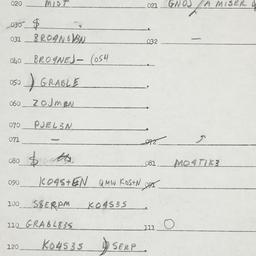 020 MIST 021 GNOJ / A MISER
030 $
031 BRO9N 032 —
040 BRO9NEJ— (054
050 ) GRABLE
060 ZOJMEN
070 PJEL3N
071 — 072
080 $ 081 MO4TIK3
090 KO4S+EN 4MW KOS+N 091
100 S8ERPM KO4S3S
110 GRABLE3S 111 O
120 KO4S3S SERP